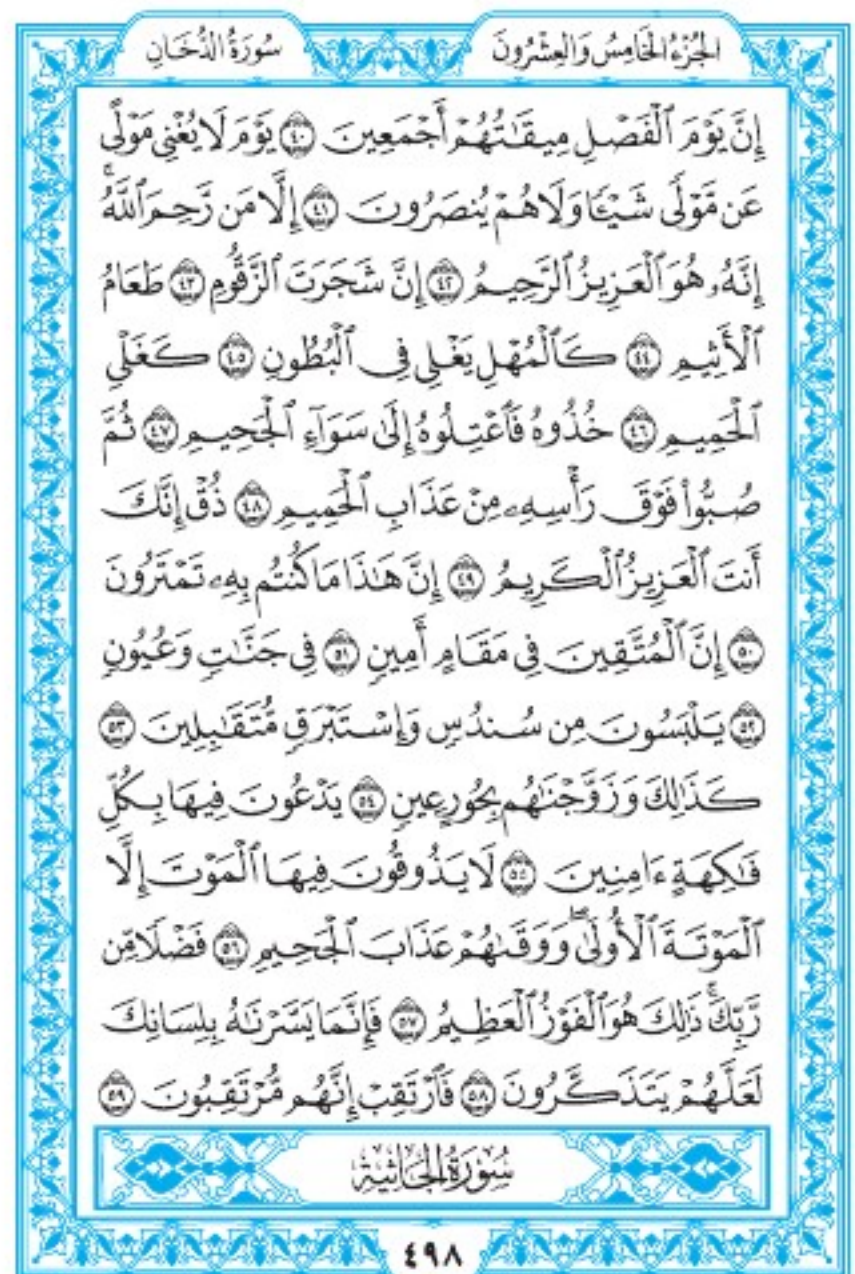 الجُزْءُ الخَامِسُ وَالعِشْرُونَ
سُورَةُ الدُّخَانِ
إِنَّ يَوْمَ ٱلْفَصْلِ مِيقَٰتُهُمْ أَجْمَعِينَ ٤٠ يَوْمَ لَا يُغْنِي مَوْلًى
عَن مَّوْلًى شَيْـًٔا وَلَا هُمْ يُنصَرُونَ ٤١ إِلَّا مَن رَّحِمَ ٱللَّهُۚ
إِنَّهُۥ هُوَ ٱلْعَزِيزُ ٱلرَّحِيمُ ٤٢ إِنَّ شَجَرَتَ ٱلزَّقُّومِ ٤٣ طَعَامُ
ٱلْأَثِيمِ ٤٤ كَٱلْمُهْلِ يَغْلِي فِي ٱلْبُطُونِ ٤٥ كَغَلْيِ
ٱلْحَمِيمِ ٤٦ خُذُوهُ فَٱعْتِلُوهُ إِلَىٰ سَوَآءِ ٱلْجَحِيمِ ٤٧ ثُمَّ
صُبُّوا۟ فَوْقَ رَأْسِهِۦ مِنْ عَذَابِ ٱلْحَمِيمِ ٤٨ ذُقْ إِنَّكَ
أَنتَ ٱلْعَزِيزُ ٱلْكَرِيمُ ٤٩ إِنَّ هَٰذَا مَا كُنتُم بِهِۦ تَمْتَرُونَ
٥٠ إِنَّ ٱلْمُتَّقِينَ فِي مَقَامٍ أَمِينٍ ٥١ فِي جَنَّٰتٍ وَعُيُونٍ
٥٢ يَلْبَسُونَ مِن سُندُسٍ وَإِسْتَبْرَقٍ مُّتَقَٰبِلِينَ ٥٣
كَذَٰلِكَ وَزَوَّجْنَٰهُم بِحُورٍ عِينٍ ٥٤ يَدْعُونَ فِيهَا بِكُلِّ
فَٰكِهَةٍ ءَامِنِينَ ٥٥ لَا يَذُوقُونَ فِيهَا ٱلْمَوْتَ إِلَّا
ٱلْمَوْتَةَ ٱلْأُولَىٰۖ وَوَقَىٰهُمْ عَذَابَ ٱلْجَحِيمِ ٥٦ فَضْلًا مِّن
رَّبِّكَۚ ذَٰلِكَ هُوَ ٱلْفَوْزُ ٱلْعَظِيمُ ٥٧ فَإِنَّمَا يَسَّرْنَٰهُ بِلِسَانِكَ
لَعَلَّهُمْ يَتَذَكَّرُونَ ٥٨ فَٱرْتَقِبْ إِنَّهُم مُّرْتَقِبُونَ ٥٩
سُورَةُ الجَاثِيَةِ
٤٩٨